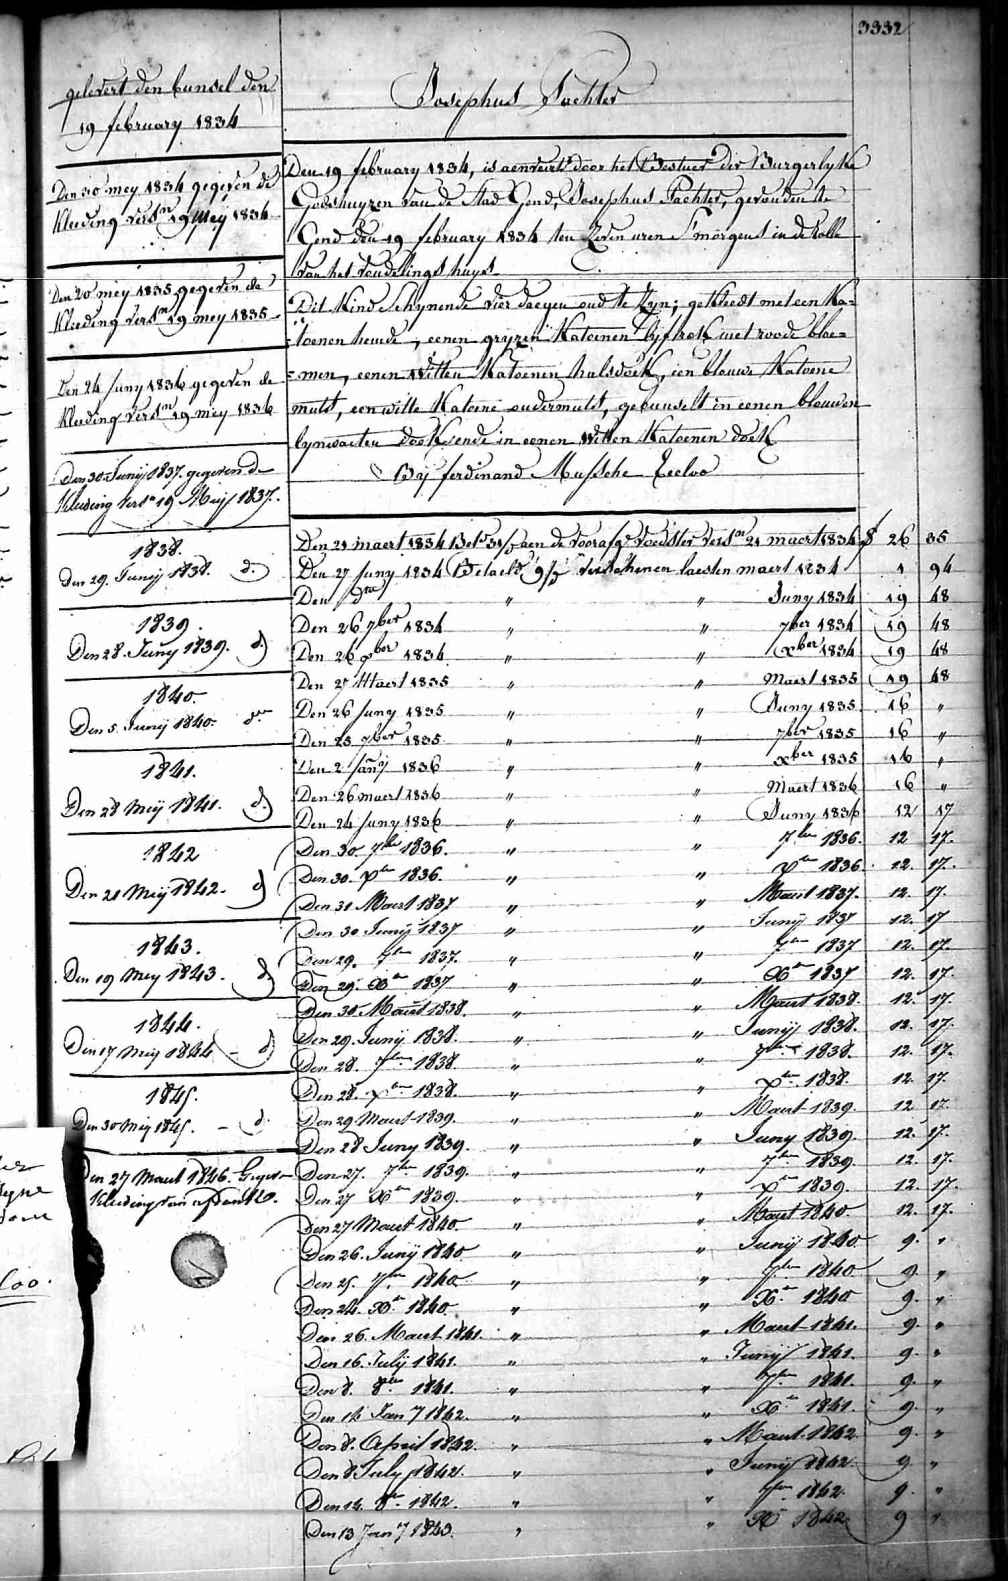 3332
gelevert den bunsel den
19 february 1834
Den 30 mey 1834 gegeven de
Kleeding versn 19 mey 1834
Den 20 mey 1835 gegeven de
Kleeding versn 19 mey 1835
Den 24 Juny 1836 gegeven de
Kleeding versn 19 mey 1836
Den 30 Junij 1837 gegeven de
Kleeding versn 19 Meij 1837.
1838.
Den 29. Junij 1838. d:
1839.
Den 28. Juny 1839. d.)
1840.
Den 5. Junij 1840.
1841.
Den 28 Meij 1841. d)
1842
Den 21 Meij 1842. d)
1843.
Den 19 Mey 1843. d)
1844.
Den 17 Meij 1844 - d)
1845.
Den 30 Meij 1845. - d.
Den 27 Maert 1846. Gegev-
Kleeding van
Josephus Pachter
Den 19 february 1834, is aenveirt door het Bestuer der Burgerlyke
Godshuyzen van de Stad Gend, Josephus Pachter, gevonden te
Gend den 19 february 1834 ten zeven uren S'morgens in de rolle
van het vondelings huys.
Dit Kind schynende vier daegen oud te Zyn; gekleedt met een Ka-
=toenen hemde, eenen gryzen Katoenen lyfrok met roode bloe=
=men, eenen Witten Katoenen halsdoek, een blauwe Katoene
muts, een witte Katoene ondermuts, gebunselt in eenen blauwen
lynwaeten doek, ende in eenen Witten Katoenen doek
Bij ferdinand Mussche Eecloo
Den 21 maert 1834 Betd 31/ aen de voorafge voedster versn 21 maert 1834 f 26 35
Den 27 Juny 1834 Betaelt 9/ verschenen laesten maert 1834 1 94
Den dto " " Juny 1834 19 48
Den 26 7ber 1834 " " 7ber 1834 19 48
Den 26 xber 1834 " " xber 1834 19 48
Den 27 Maert 1835 " " Maert 1835 19 48
Den 26 Juny 1835 " " Juny 1835 16 "
Den 25 7ber 1835 " " 7ber 1835 16 "
Den 2 Jany 1836 " " xber 1835 16 "
Den 26 maert 1836 " " Maert 1836 16 "
Den 24 Juny 1836 " " Juny 1836 12 17
Den 30 7ber 1836. " " 7ber 1836. 12 17.
Den 30. Xber 1836. " " Xber 1836. 12. 17.
Den 31 Maert 1837 " " Maert 1837. 12. 17.
Den 30 Junij 1837 " " Junij 1837 12. 17
Den 29. 7ber 1837. " " 7ber 1837 12. 17.
Den 29. Xber 1837 " " Xber 1837 12. 17.
Den 30 Maert 1838. " " Maert 1838. 12. 17.
Den 29. Junij 1838. " " Junij 1838. 12. 17.
Den 28. 7ber 1838. " " 7ber 1838. 12. 17.
Den 28. Xber 1838. " " Xber 1838. 12. 17.
Den 29 Maert 1839. " " Maert 1839. 12 17.
Den 28 Juny 1839. " " Juny 1839. 12. 17.
Den 27. 7ber 1839. " " 7ber 1839. 12. 17.
Den 27 Xber 1839. " " Xber 1839. 12. 17.
Den 27 Maert 1840. " " Maert 1840 12. 17.
Den 26. Junij 1840 " " Junij 1840 9. "
Den 25. 7ber 1840. " " 7ber 1840 9. "
Den 24. Xber 1840. " " Xber 1840 9. "
Den 26. Maert 1841. " " Maert 1841. 9. "
Den 16. Julij 1841. " " Junij 1841. 9. "
Den 8. 8ber 1841. " " 7ber 1841. 9. "
Den 14 Jany 1842. " " Xber 1841. 9. "
Den 8. April 1842. " " Maert 1842 9. "
Den 8 July 1842. " " Junij 1842. 9 "
Den 14. 8ber 1842. " " 7ber 1842. 9. "
Den 13 Jany 1843. " " Xber 1842 9 "